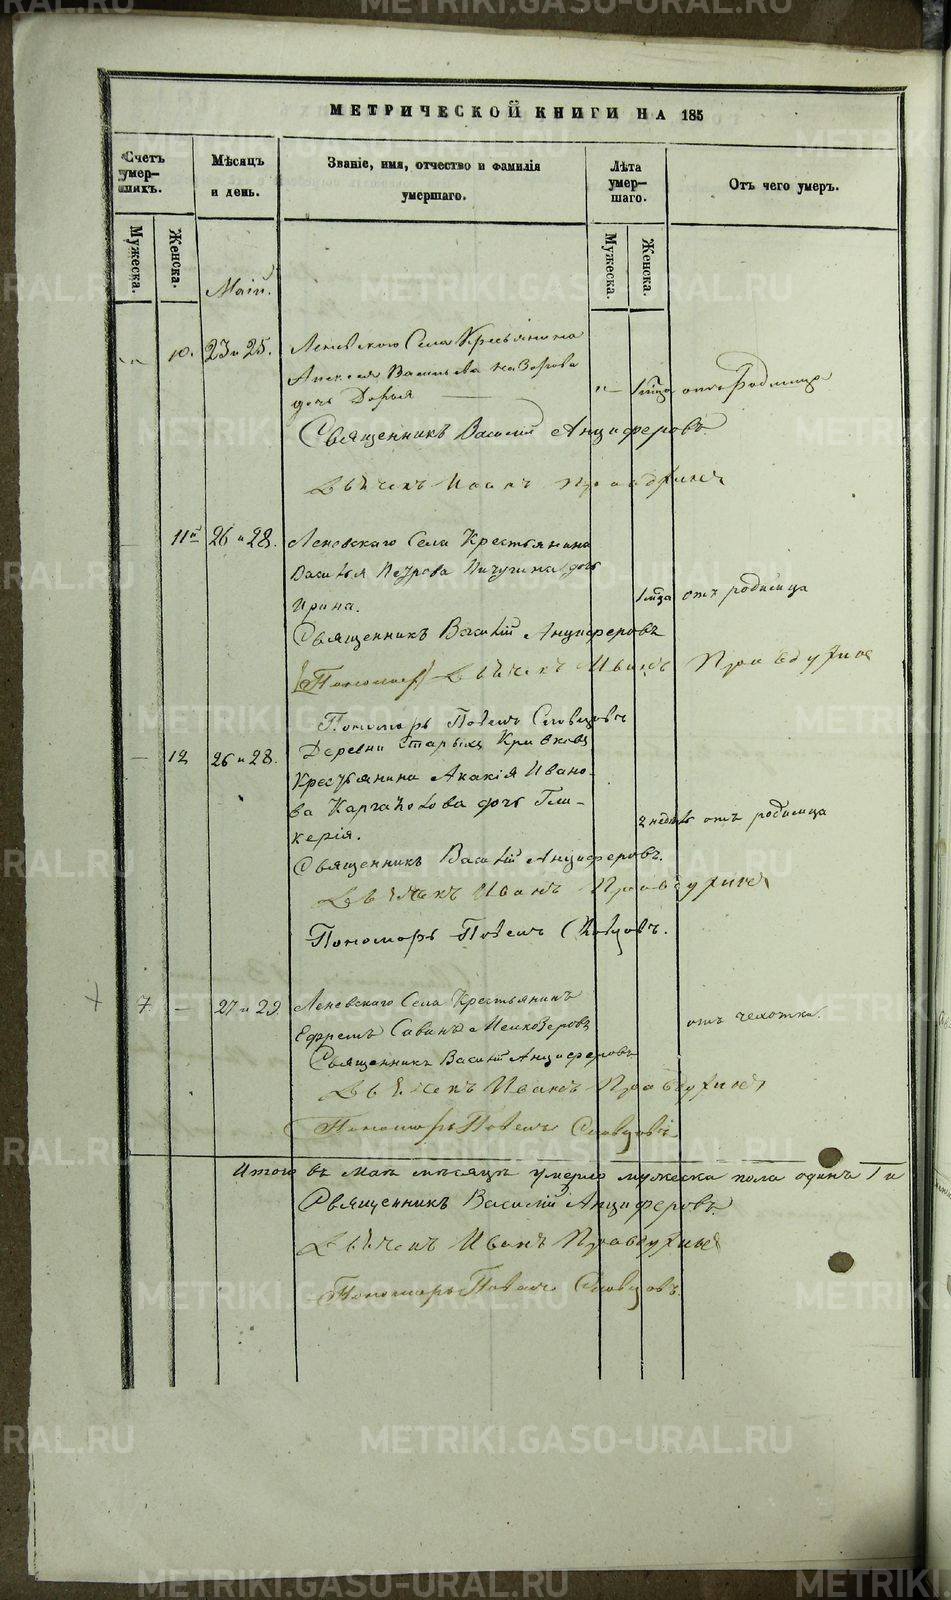 МЕТРИЧЕСКОЙ КНИГИ НА 185
Счетъ умер- шихъ.
Мѣсяцъ и день.
Званіе, имя, отчество и фамилія умершаго.
Лѣта умер- шаго.
Отъ чего умеръ.
Мужеска.
Женска.
Мужеска.
Женска.
Маій.
10. 23 и 25. Леневского Села Кресьянина
Алексея Васильева Назарова
дочь Дарья 1 мца отъ Родимца
Священникъ Василій Анциферовъ.
Дьячекъ Иванъ
11й 26 и 28. Леневскаго Села Крестьянина
Василья Петрова Пичугина дочь
Ирина. 1 мца отъ родимца
Священникъ Василій Анциферовъ
(Пономарь) Дьячекъ Иванъ
Пономарь Павелъ Словцовъ
12 26 и 28. Деревни Старыхъ Кривковъ
Крестьянина Акакія Ивано-
ва Каргаполова дочь Гли-
керія. 2 недѣль отъ родимца
Священникъ Василій Анциферовъ.
Дьячекъ Иванъ
Пономарь Павелъ Словцовъ.
7. – 27 и 29. Леневскаго Села Крестьянинъ
Ефремъ отъ чахотки.
Священникъ Василій Анциферовъ
Дьячекъ Иванъ
Пономарь Павелъ Словцовъ
Итого въ Маѣ мѣсяцѣ умерло мужеска пола одинъ 1 и
Священникъ Василій Анциферовъ.
Дьячекъ Иванъ
Пономарь Павелъ Словцовъ
METRIKI.GASO-URAL.RU